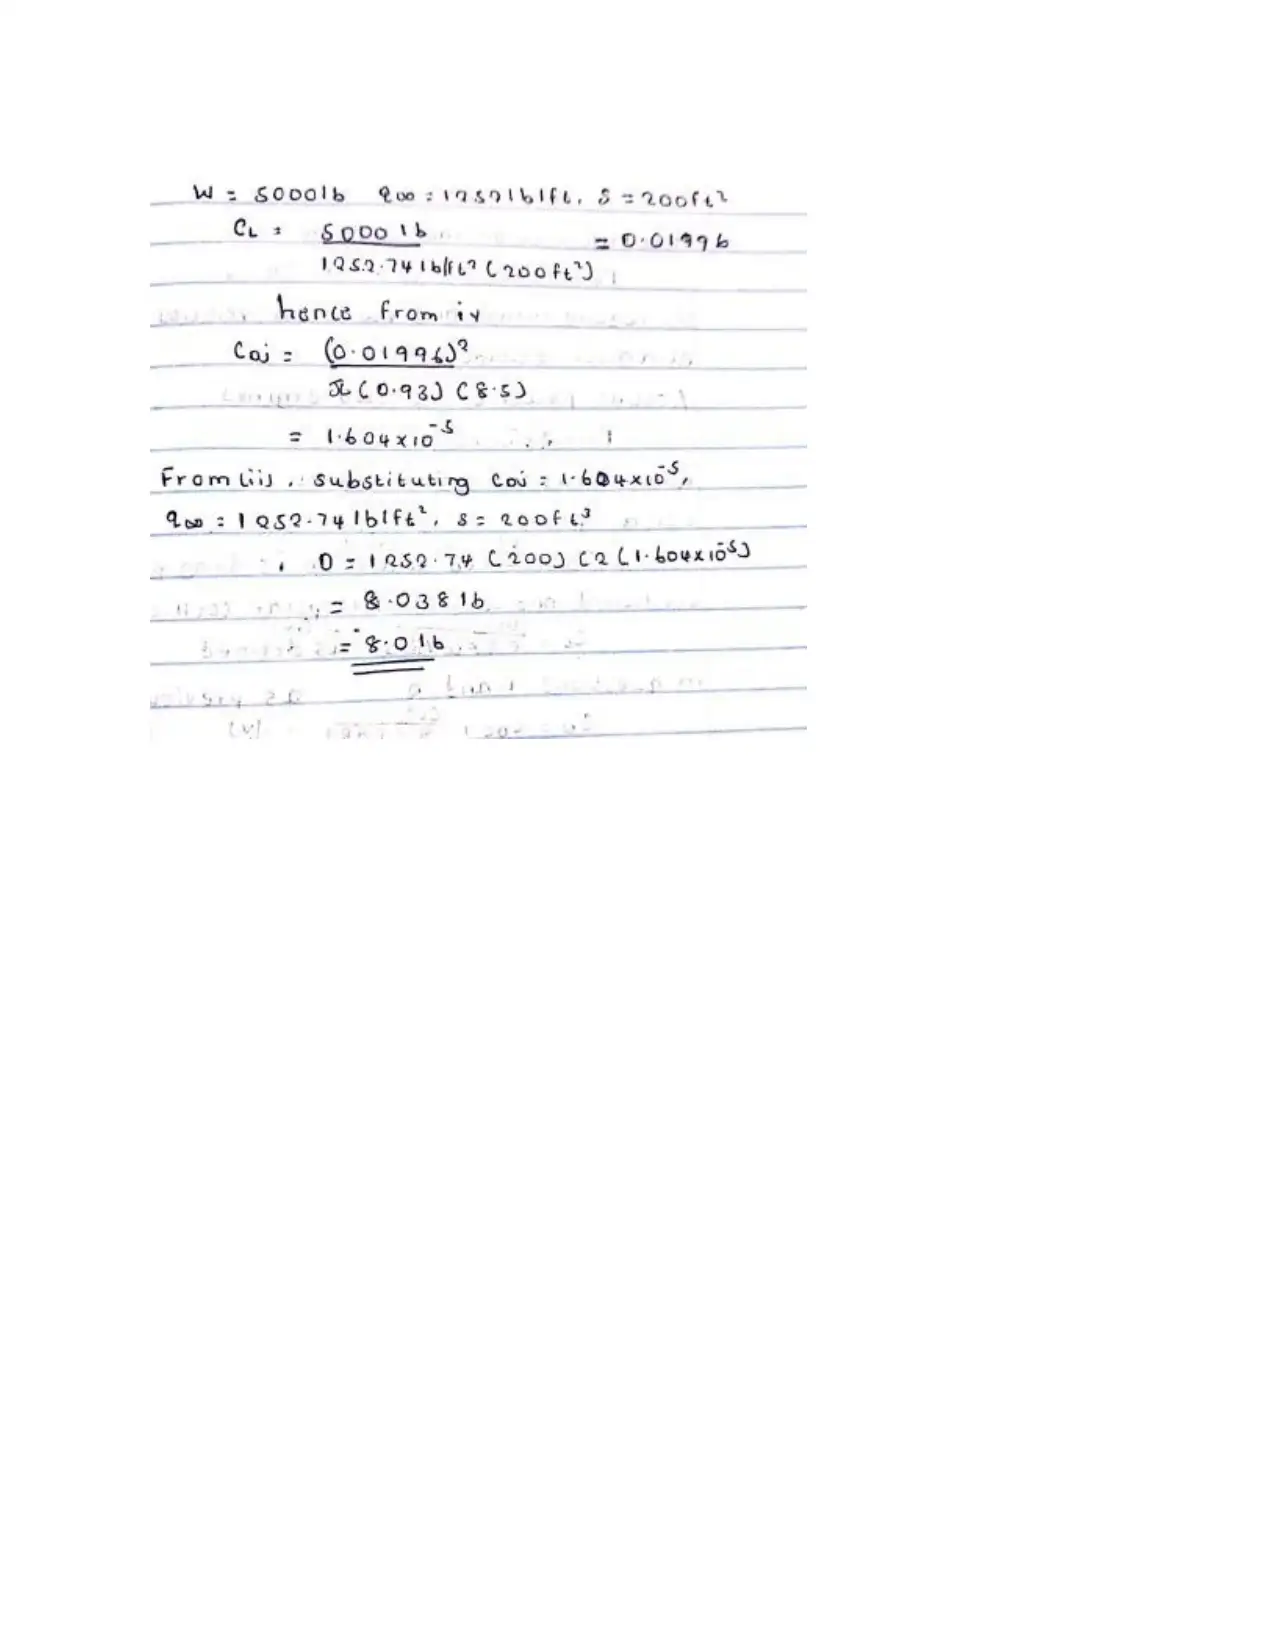 W = 5000lb q∞ = 1252lb/ft. S = 200ft²
CL = 5000 lb = 0.01996
1252.74 lb/ft² (200 ft²)
hence from iv
CDi = (0.01996)²
π (0.93) (8.5)
= 1.604 x 10⁻⁵
From (ii), substituting CDi = 1.604x10⁻⁵,
q∞ = 1252.74 lb/ft², S = 200ft³
D = 1252.74 (200) (2 (1.604x10⁻⁵)
= 8.038 lb
= 8.0 lb